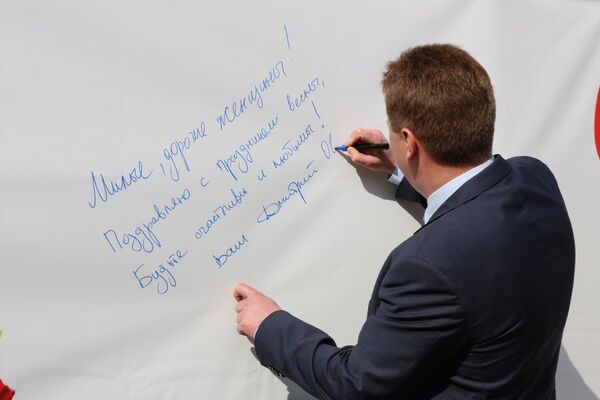 Милые, дорогие женщины!
Поздравляю с праздником весны,
Будьте счастливы и любимы!
Ваш Дмитрий Ов